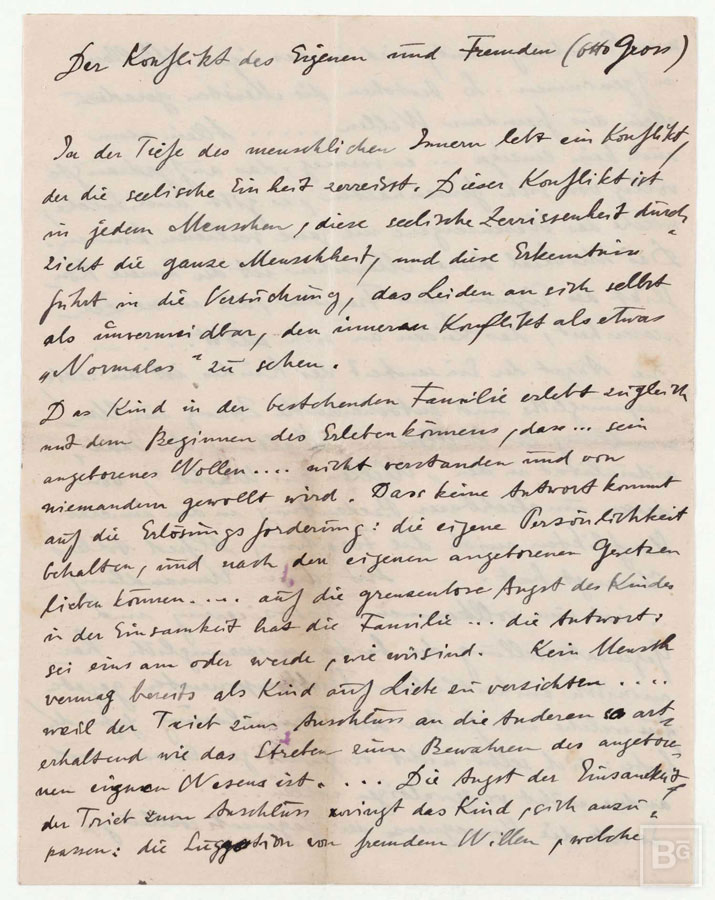 Der Konflikt des Eigenen und Fremden (Otto Gross)
In der Tiefe des menschlichen Innern lebt ein Konflikt,
der die seelische Einheit zerreisst. Dieser Konflikt ist
in jedem Menschen, diese seelische Zerrissenheit durch-
zieht die ganze Menschheit, und diese Erkenntnis
führt in die Versuchung, das Leiden an sich selbst
als unvermeidbar, den inneren Konflikt als etwas
„Normales" zu sehen.
Das Kind in der bestehenden Familie erlebt zugleich
mit dem Beginnen des Erlebenkönnens, dass... sein
angeborenes Wollen.... nicht verstanden und von
niemandem gewollt wird. Dass keine Antwort kommt
auf die Erlösungsforderung: die eigene Persönlichkeit
behalten, und nach den eigenen angeborenen Gesetzen
lieben können.... auf die grenzenlose Angst des Kindes
in der Einsamkeit hat die Familie... die Antwort:
sei einsam oder werde, wie wir sind. Kein Mensch
vermag bereits als Kind auf Liebe zu verzichten....
weil der Trieb zum Anschluss an die Anderen so art-
erhaltend wie das Streben zum Bewahren des angebore-
nen eignen Wesens ist.... Die Angst der Einsamkeit,
der Trieb zum Anschluss zwingt das Kind, sich anzu-
passen: die Suggestion von fremdem Willen, welche
BG